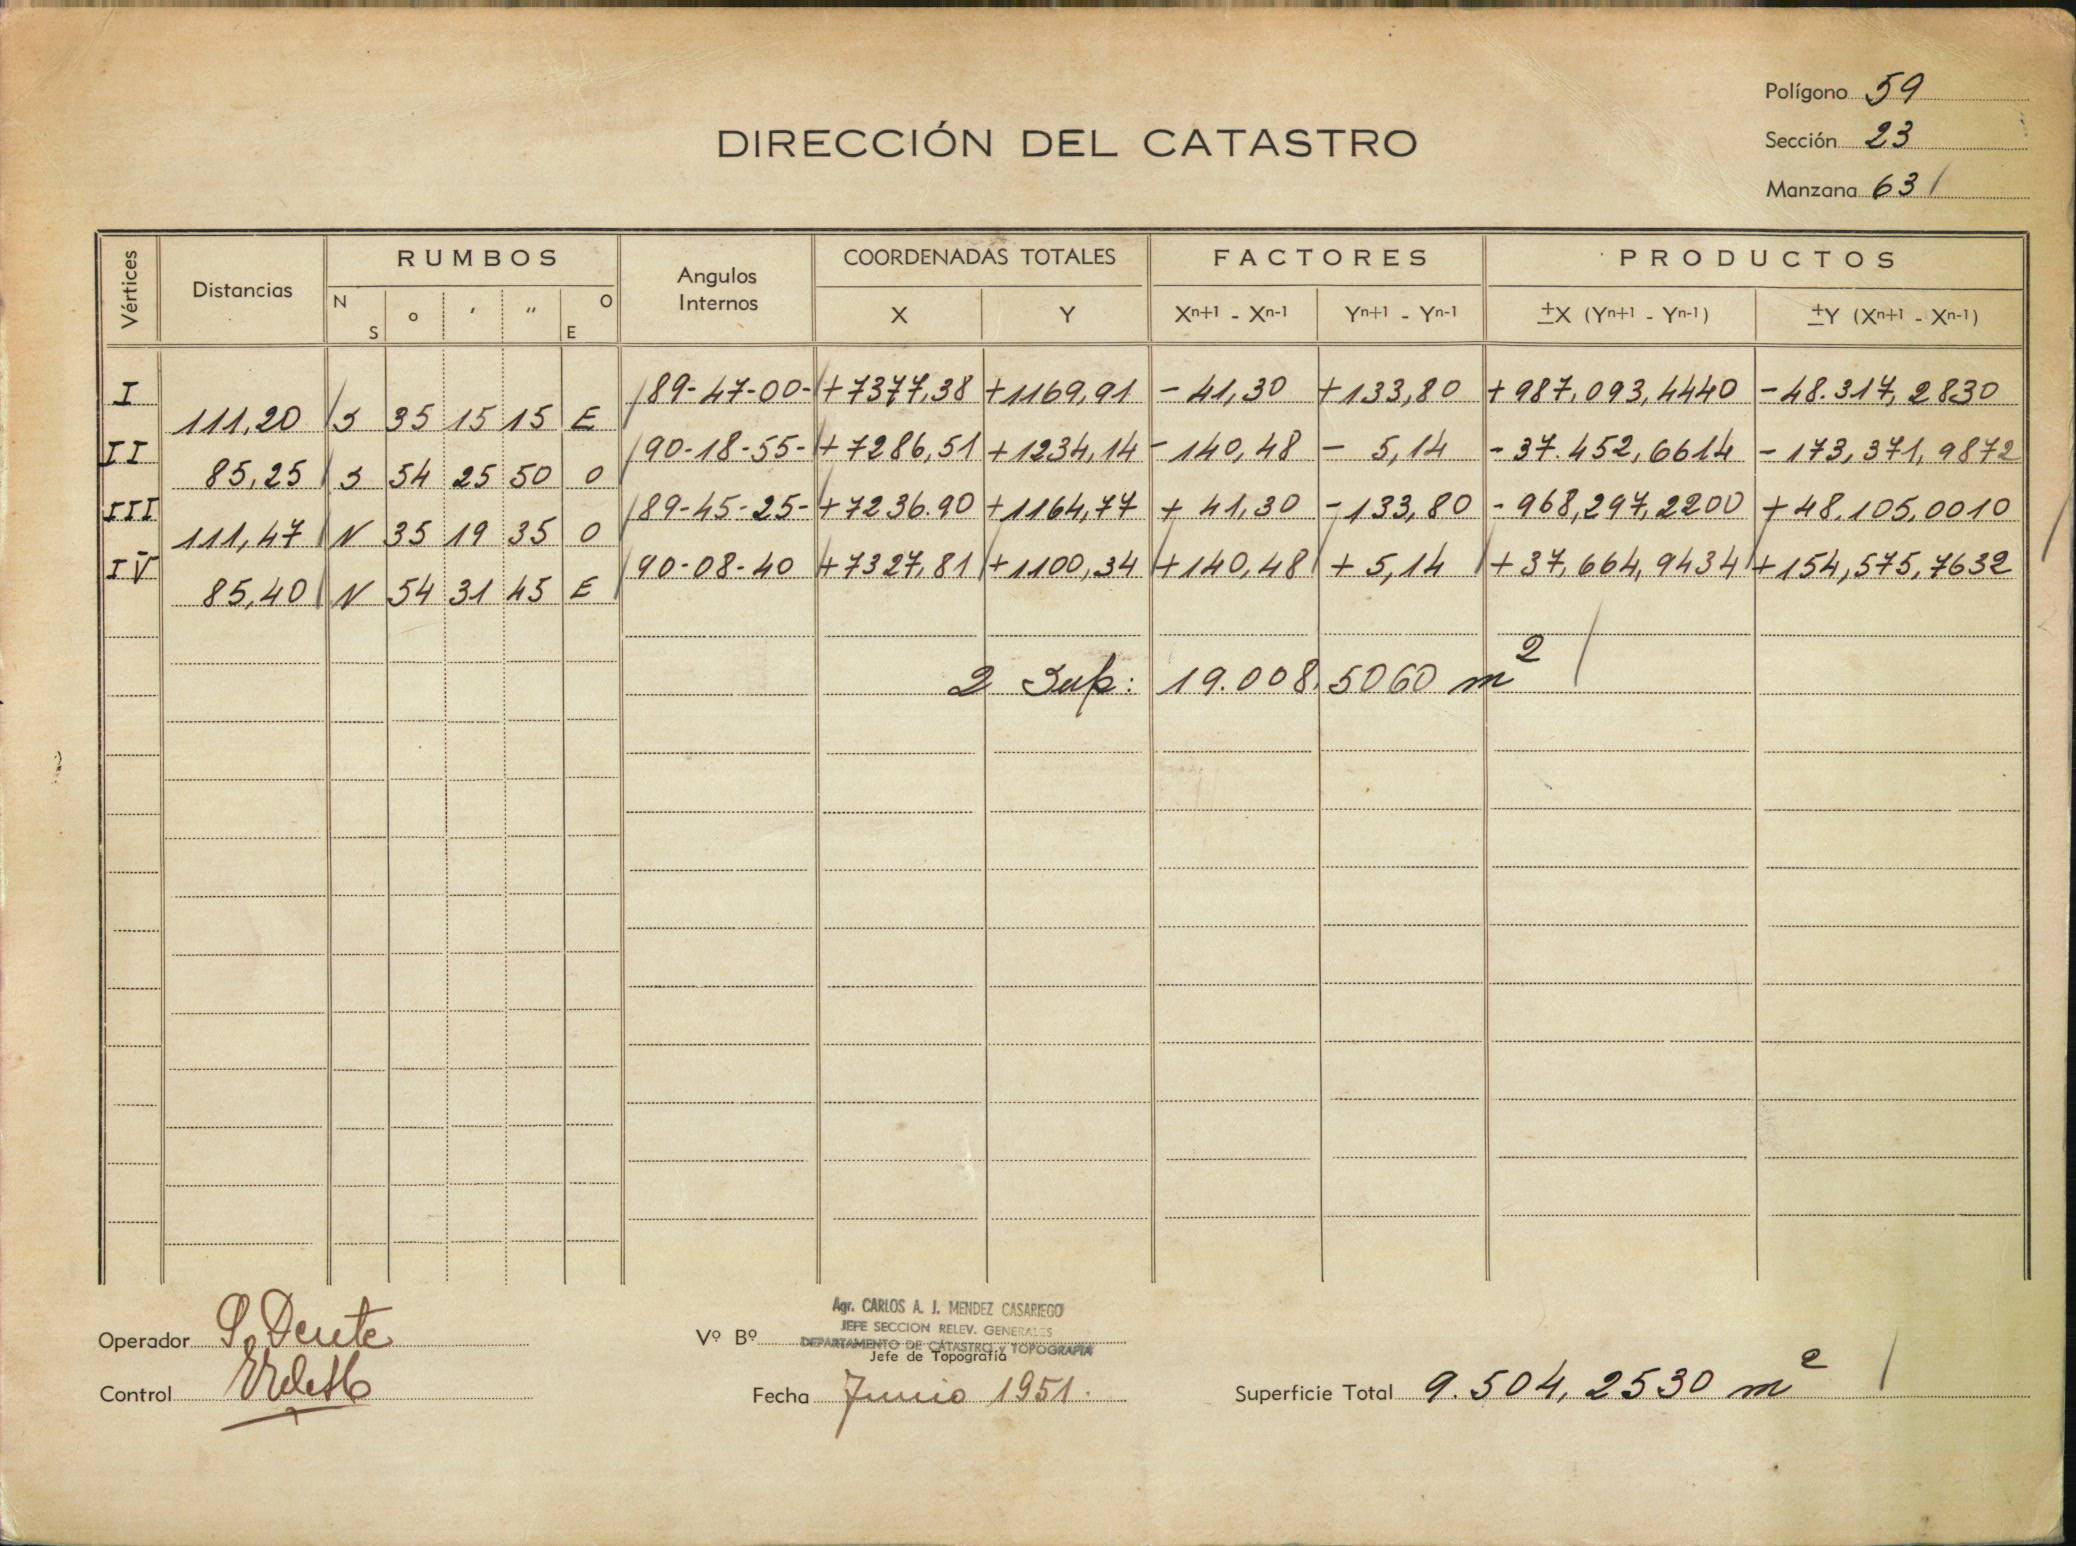 Polígono 59
DIRECCIÓN DEL CATASTRO
Sección 23
Manzana 63
Vértices Distancias RUMBOS Angulos Internos COORDENADAS TOTALES FACTORES PRODUCTOS
N S o ' " O E X Y Xn+1 - Xn-1 Yn+1 - Yn-1 ±X (Yn+1 - Yn-1) ±Y (Xn+1 - Xn-1)
I 89-47-00- +7377,38 +1169,91 - 41,30 +133,80 +987,093,4440 -48.317,2830
111,20 S 35 15 15 E
II 90-18-55- +7286,51 +1234,14 -140,48 - 5,14 -37.452,6614 -173,371,9872
85,25 S 54 25 50 O
III 89-45-25- +7236.90 +1164,77 + 41,30 -133,80 -968,297,2200 +48.105,0010
111,47 N 35 19 35 O
IV 90-08-40 +7327,81 +1100,34 +140,48 + 5,14 +37,664,9434 +154,575,7632
85,40 N 54 31 45 E
2 Sup: 19.008,5060 m2
Agr. CARLOS A. J. MENDEZ CASARIEGO
JEFE SECCION RELEV. GENERALES
Operador Vº Bº DEPARTAMENTO DE CATASTRO Y TOPOGRAFIA
Jefe de Topografía
Control Fecha Junio 1951. Superficie Total 9.504,2530 m2